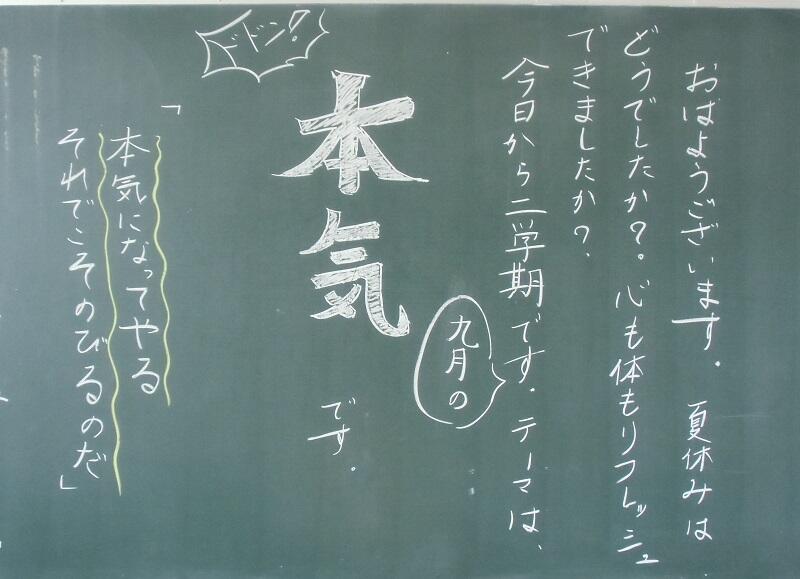 おはようございます。 夏休みは
どうでしたか?。心も体もリフレッシュ
できましたか?
今日から二学期です。テーマは、
九月の
ドドン!
本気
です。
「本気になってやる
それでこそのびるのだ」